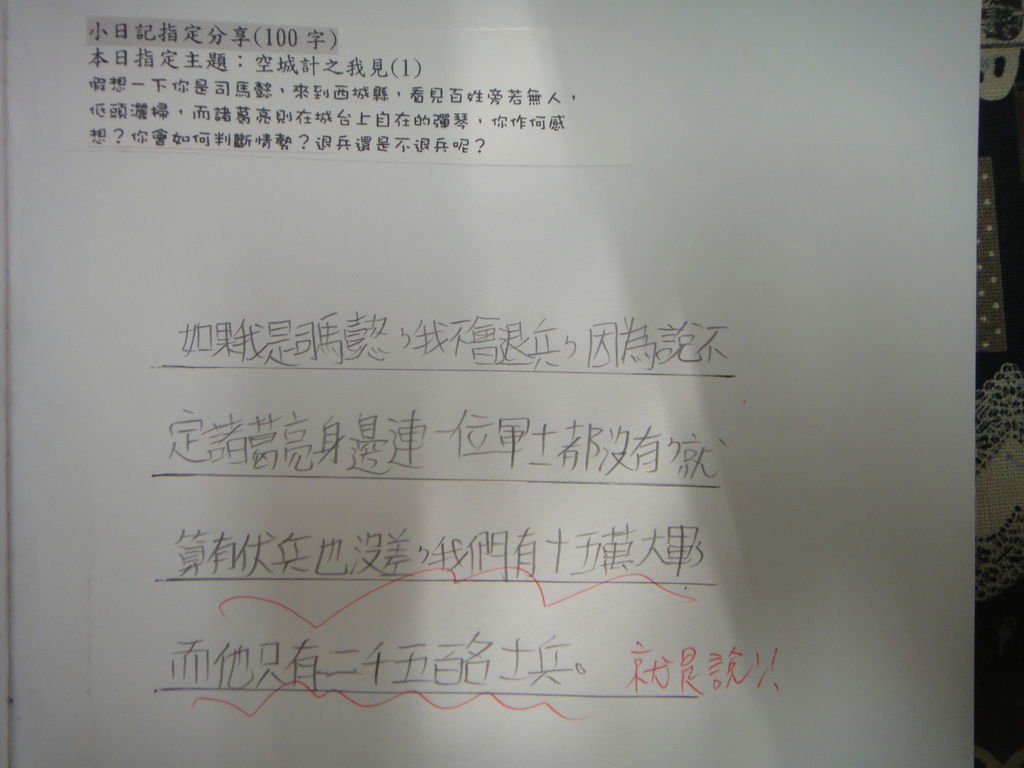 小日記指定分享(100字)
本日指定主題：空城計之我見(1)
假想一下你是司馬懿，來到西城縣，看見百姓旁若無人，
低頭灑掃，而諸葛亮則在城台上自在的彈琴，你作何感
想？你會如何判斷情勢？退兵還是不退兵呢？
如果我是司馬懿，我不會退兵，因為說不
定諸葛亮身邊連一位軍士都沒有，就
算有伏兵也沒差，我們有十五萬大軍，
而他只有二千五百名士兵。 就是說!!